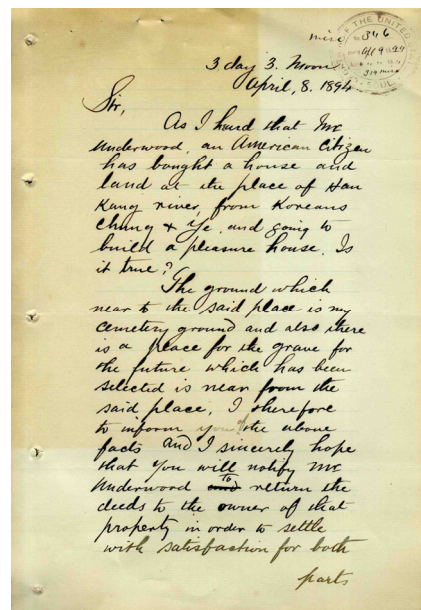 misc 346
OF THE UNITED
SEOUL
3 day 3. Moon
April, 8. 1894
Sir,
As I heard that Mr
Underwood, an American Citizen
has bought a house and
land at the place of Han
Kang river, from Koreans
Chung & Ye, and going to
build a pleasure house. Is
it true?
The ground which
near to the said place is my
cemetery ground and also there
is a place for the grave for
the future which has been
selected is near from the
said place, I therefore
to inform you the above
facts and I sincerely hope
that you will notify Mr
Underwood to return the
deeds to the owner of that
property in order to settle
with satisfaction for both
parts